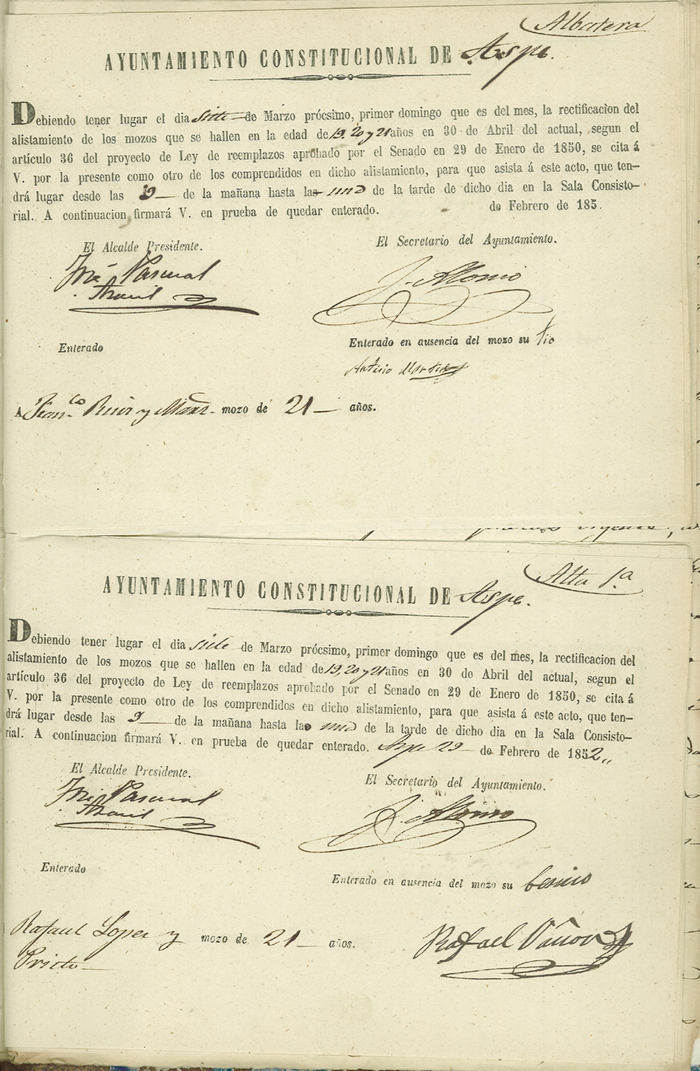 Albatera
AYUNTAMIENTO CONSTITUCIONAL DE Aspe.
Debiendo tener lugar el dia siete de Marzo prócsimo, primer domingo que es del mes, la rectificacion del
alistamiento de los mozos que se hallen en la edad de 19, 20 y 21 años en 30 de Abril del actual, segun el
artículo 36 del proyecto de Ley de reemplazos aprobado por el Senado en 29 de Enero de 1850, se cita á
V. por la presente como otro de los comprendidos en dicho alistamiento, para que asista á este acto, que ten-
drá lugar desde las 9 de la mañana hasta la una de la tarde de dicho dia en la Sala Consisto-
rial. A continuacion firmará V. en prueba de quedar enterado. de Febrero de 185
El Alcalde Presidente. El Secretario del Ayuntamiento.
Pascual J. Alonso
Enterado Enterado en ausencia del mozo su tio
Antonio
A Franco y mozo de 21 años.
Alta 1.a
AYUNTAMIENTO CONSTITUCIONAL DE Aspe.
Debiendo tener lugar el dia siete de Marzo prócsimo, primer domingo que es del mes, la rectificacion del
alistamiento de los mozos que se hallen en la edad de 19, 20 y 21 años en 30 de Abril del actual, segun el
artículo 36 del proyecto de Ley de reemplazos aprobado por el Senado en 29 de Enero de 1850, se cita á
V. por la presente como otro de los comprendidos en dicho alistamiento, para que asista á este acto, que ten-
drá lugar desde las 9 de la mañana hasta la una de la tarde de dicho dia en la Sala Consisto-
rial. A continuacion firmará V. en prueba de quedar enterado. Aspe 29 de Febrero de 1852
El Alcalde Presidente. El Secretario del Ayuntamiento.
Pascual J. Alonso
Enterado Enterado en ausencia del mozo su
Rafael Lopez y mozo de 21 años. Rafael
Prieto